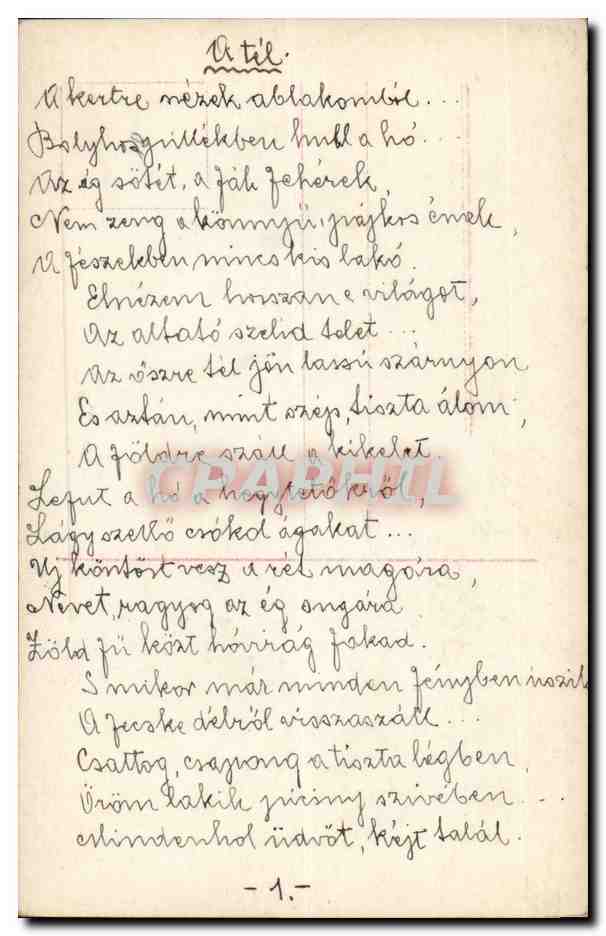 A tél.
A kertre nézek ablakomból...
Bolyhos pillékben hull a hó...
Az ég sötét, a fák fehérek,
Nem zeng a könnyü, pajkos ének,
A fészekben nincs kis lakó.
Elnézem hosszan e világot,
Az altató szelid telet...
Az őszre tél jön lassú szárnyon
És aztán, mint szép, tiszta álom,
A földre száll a kikelet.
Lefut a hó a hegytetőkről,
Lágy szellő csókol ágakat...
Uj köntöst vesz a rét magára,
Nevet, ragyog az ég sugára
Zöld fü közt hóvirág fakad.
S mikor már minden fényben úszik
A fecske délről visszaszáll...
Csattog, csapong a tiszta légben,
Öröm lakik piciny szivében...
Mindenhol üdvöt, kéjt talál.
- 1. -
CPAPHIL